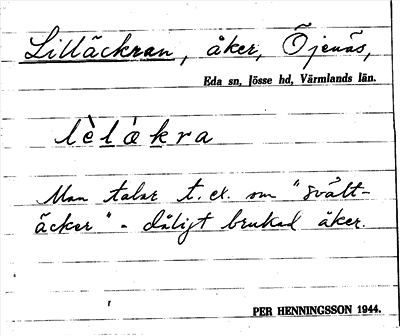 Lilläckran, åker, Öjenäs,
Eda sn, Jösse hd, Värmlands län.
lèlákra
Man talar t. ex. om "svält-
äcker" - dåligt brukad åker.
PER HENNINGSSON 1944.